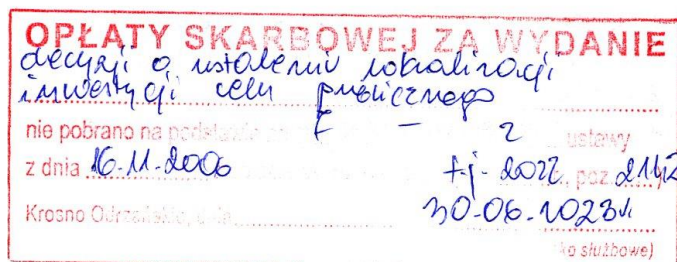 OPŁATY SKARBOWEJ ZA WYDANIE
decyzji o ustaleniu lokalizacji
inwestycji celu publicznego
nie pobrano na podstawie 7 - 2 ustawy
z dnia 16.11.2006 tj. 2022, poz. 2142
Krosno Odrzańskie, dnia 30-06-2023r.
służbowe)